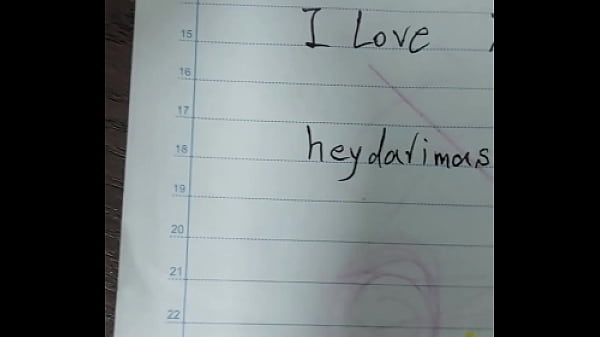 15
I Love
16
17
18
heydarimas
19
20
21
22